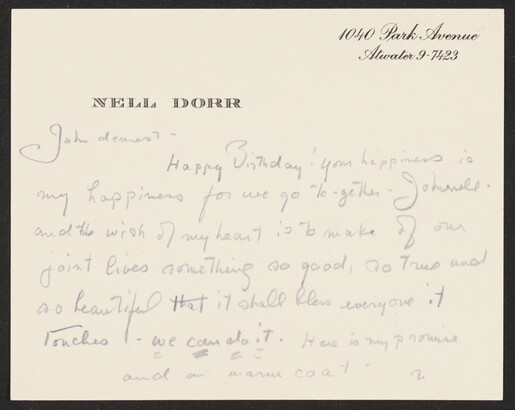 1040 Park Avenue
Atwater 9-7423
NELL DORR
John dearest -
Happy Birthday! Your happiness is
my happiness for we go to-gether - Johnnell -
and the wish of my heart is to make of our
joint lives something so good, so true and
so beautiful that it shall bless everyone it
touches - we can do it. Here is my promise
and a warm coat - n.